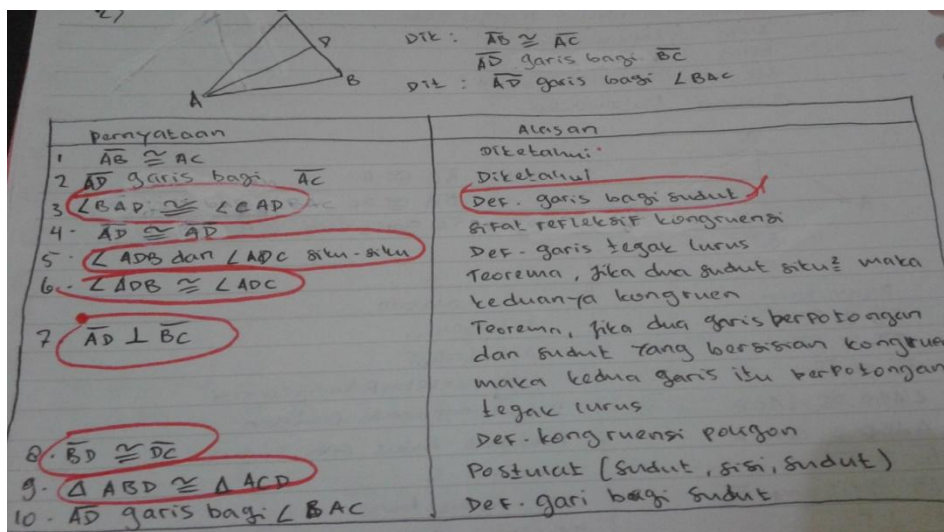 2)
A
B
D
Dik : AB ≅ AC
AD garis bagi BC
Dit : AD garis bagi ∠BAC
Pernyataan Alasan
1 AB ≅ AC Diketahui
2 AD garis bagi AC Diketahui
3 ∠BAD ≅ ∠CAD Def. garis bagi sudut
4. AD ≅ AD sifat refleksif kongruensi
5. ∠ADB dan ∠ADC siku-siku Def. garis tegak lurus
6. ∠ADB ≅ ∠ADC Teorema, jika dua sudut siku² maka
keduanya kongruen
7 AD ⊥ BC Teorema, jika dua garis berpotongan
dan sudut yang bersisian kongruen
maka kedua garis itu berpotongan
tegak lurus
8. BD ≅ DC Def. kongruensi poligon
9. △ABD ≅ △ACD Postulat (sudut, sisi, sudut)
10. AD garis bagi ∠BAC Def. gari bagi sudut